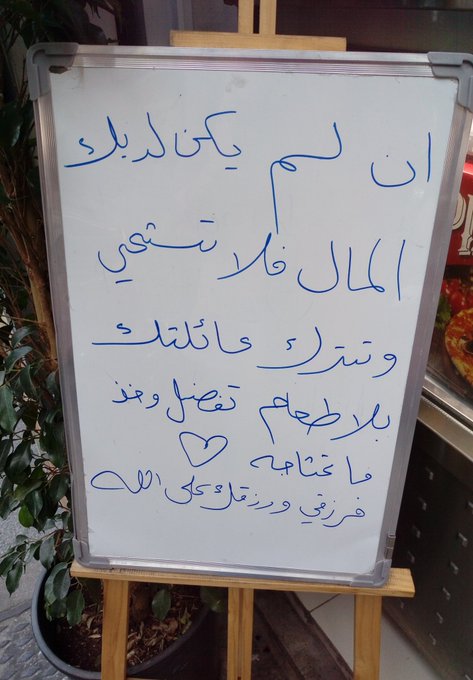 ان لم يكن لديك
المال فلا تستحي
وتترك عائلتك
بلا طعام تفضل وخذ
ما تحتاجه
فرزقي ورزقك على الله